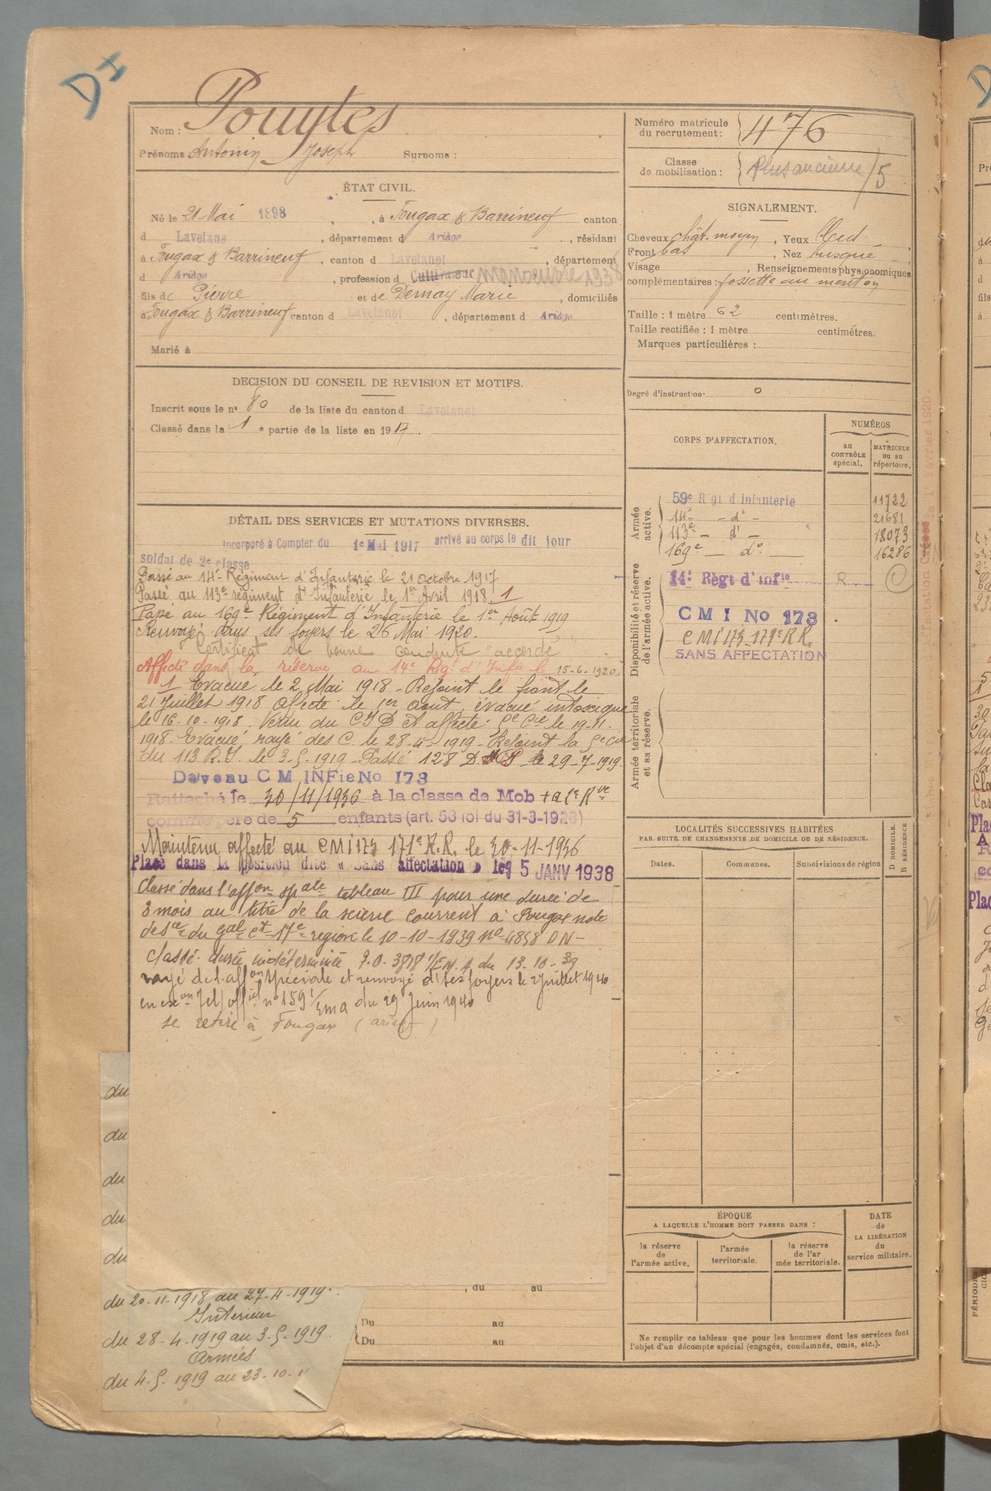 DI
Nom : Pouytes
Prénoms Antonin Joseph Surnoms :
Numéro matricule du recrutement : 476
Classe de mobilisation : Plus ancienne/5
ÉTAT CIVIL.
Né le 21 Mai 1898, à Fougax & Barrineuf canton
d Lavelanet, département d Ariège, résidant
à Fougax & Barrineuf, canton d Lavelanet, département
d Ariège, profession d Cultivateur
fils de Pierre et de Dernay Marie, domiciliés
à Fougax & Barrineuf canton d Lavelanet, département d Ariège
Marié à
SIGNALEMENT.
Cheveux chât. moyen, Yeux bleu
Front bas, Nez busqué
Visage, Renseignements physionomiques
complémentaires : fossette au menton
Taille : 1 mètre 62 centimètres.
Taille rectifiée : 1 mètre centimètres.
Marques particulières :
Degré d'instruction 0
DECISION DU CONSEIL DE REVISION ET MOTIFS.
Inscrit sous le n° 80 de la liste du canton d Lavelanet
Classé dans la 1e partie de la liste en 1917.
DÉTAIL DES SERVICES ET MUTATIONS DIVERSES.
Incorporé à Compter du 1er Mai 1917 arrivé au corps le dit jour
soldat de 2e classe
Passé au 14e Régiment d'Infanterie le 21 octobre 1917
Passé au 113e régiment d'Infanterie le 1er Avril 1918. 1
Passé au 169e Régiment d'Infanterie le 1er Août 1919
Renvoyé dans ses foyers le 26 Mai 1920.
Certificat de bonne conduite "accordé"
Affecté dans la réserve au 14e Régt d'Infie le 15-6-1920
1 Evacué le 2 Mai 1918 - Rejoint le front le
21 Juillet 1918 Affecté le 1er aout, évacué intoxiqué
le 16-10-1918. Venu du C.I.D et affecté 5e Cie le 19.11.
1918. Evacué rayé des C. le 28-4-1919 - Rejoint la 5e Cie
du 113 R.I. le 3-5-1919 - Passé 128 D le 29-7-1919
Deveau C M INFie No 173
Rattaché le 30/11/1936 à la classe de Mob + a l' Rve
comme père de 5 enfants (art. 58 loi du 31-3-1928)
Maintenu affecté au CMI 173 171e R.R. le 30-11-1936
Placé dans la position dite « Sans affectation » le 15 JANV 1938
Classé dans l'affon spale tableau III pour une durée de
3 mois au titre de la scierie Courrent à Fougax note
de sce du gal Ct 17e région le 10-10-1939 No 4858 DN -
Classé durée indéterminée 7.0.3818 1/EM.A du 13.10-39
rayé de l'affon spéciale et renvoyé ds ses foyers le 2 juillet 1940
en exon Tel/offiel n° 159 1/Ema du 29 Juin 1940
se retire à Fougax (ariège)
CORPS D'AFFECTATION.
NUMÉROS
au CONTRÔLE spécial.
MATRICULE ou au répertoire.
Armée active.
59e Régt d'Infanterie 11722
14e - do - 21681
113e - do - 18073
169e - do - 16286
Disponibilité et réserve de l'armée active.
14e Règt d'Infie R
C M I No 173
CMI 173-171e R.R.
SANS AFFECTATION
Armée territoriale et sa réserve.
LOCALITÉS SUCCESSIVES HABITÉES
PAR SUITE DE CHANGEMENTS DE DOMICILE OU DE RÉSIDENCE.
Dates.
Communes.
Subdivisions de région
D DOMICILE.
R RÉSIDENCE
ÉPOQUE
A LAQUELLE L'HOMME DOIT PASSER DANS :
la réserve de l'armée active.
l'armée territoriale.
la réserve de l'armée territoriale.
DATE de LA LIBÉRATION du service militaire.
Ne remplir ce tableau que pour les hommes dont les services font
l'objet d'un décompte spécial (engagés, condamnés, omis, etc.).
du
du
du
du
du
, du au
Du au
Du au
du 20-11-1918 au 27-4-1919
Intérieur
du 28-4-1919 au 3-5-1919
Armées
du 4-5-1919 au 23-10-1